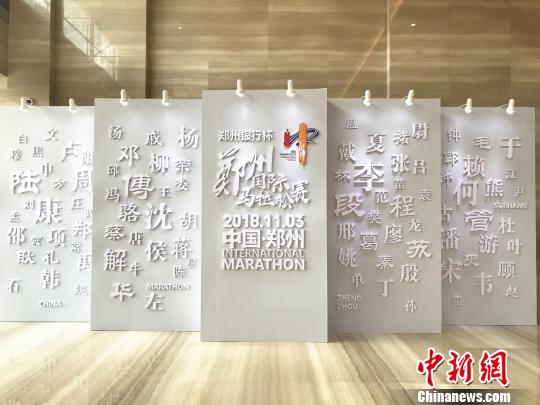 白 文
穆 焦 卢
申 周
陆 方 庄
康 武
孟 刘 郑
邵 项 禹
耿 孔 韩
石
CHINA
汤 戚 杨
邓 柳 荣
邱 傅 王
冯 骆 沈 胡
蔡 唐 侯 蒋
解 陈
MARATHON
华 左
郑州银行杯
郑州国际
马拉松赛
2018.11.03
中国·郑州
INTERNATIONAL
MARATHON
温 褚 尉
戴 夏 张 吕
李 苗 袁
段 范 樊 程 龙
邢 葛 廖 苏
姚 秦 殷
单 丁
ZHENG
ZHOU
孙
钟 毛 于
郭 许 赖 江
何 熊 尹
SURNAME
古 管 杜
潘 游 叶
宋 史 韦 顾
雷 赵
中新网
Chinanews.com